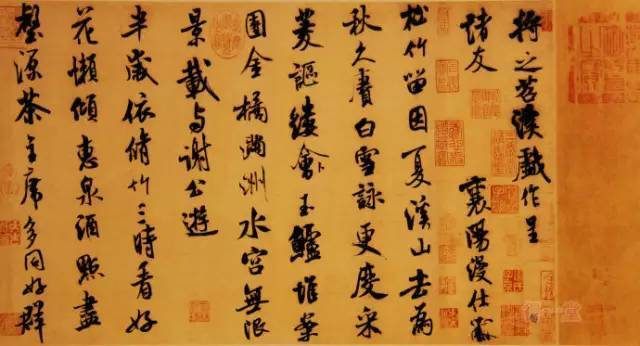 將之苕溪戲作呈
諸友　襄陽漫仕黻
松竹留因夏溪山去為
秋久賡白雪詠更度采
菱謳縷會卜玉鱸堆案
團金橘滿洲水宮無限
景載与謝公遊
半歲依脩竹三時看好
花懶傾惠泉酒點盡
壑源茶主席多同好群